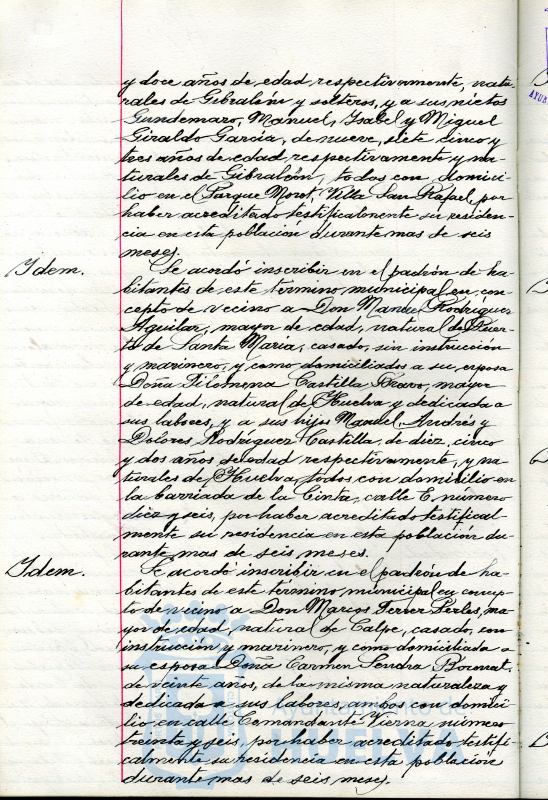 y doce años de edad respectivamente, natu-
rales de Gibraleón y solteros, y a sus nietos
Gundemaro, Manuel, Isabel y Miguel
Giraldo García, de nueve, siete cinco y
tres años de edad respectivamente y na-
turales de Gibraleón, todos con domici-
lio en el Parque Moret, Villa San Rafael, por
haber acreditado testificalmente su residen-
cia en esta población durante mas de seis
meses.
Idem.
Se acordó inscribir en el padrón de ha-
bitantes de este término municipal en con-
cepto de vecino a Don Manuel Rodríguez
Aguilar, mayor de edad, natural de Puer-
to de Santa María, casado, sin instrucción
y marinero, y como domiciliados a su esposa
Doña Filomena Castilla, mayor
de edad, natural de Huelva y dedicada a
sus labores, y a sus hijos Manuel, Andrés y
Dolores Rodríguez Castilla, de diez, cinco
y dos años de edad respectivamente, y na-
turales de Huelva, todos con domicilio en
la barriada de la Cinta, calle C, número
diez y seis, por haber acreditado testifical-
mente su residencia en esta población du-
rante mas de seis meses.
Idem.
Se acordó inscribir en el padrón de ha-
bitantes de este término municipal en concep-
to de vecino a Don Marcos Ferrer Perles, ma-
yor de edad, natural de Calpe, casado, con
instrucción y marinero, y como domiciliada a
su esposa Doña Carmen
de veinte años, de la misma naturaleza y
dedicada a sus labores, ambos con domici-
lio en calle Comandante Vierna número
treinta y seis, por haber acreditado testifi-
calmente su residencia en esta población
durante mas de seis meses.
Ayuntamiento de
HUELVA